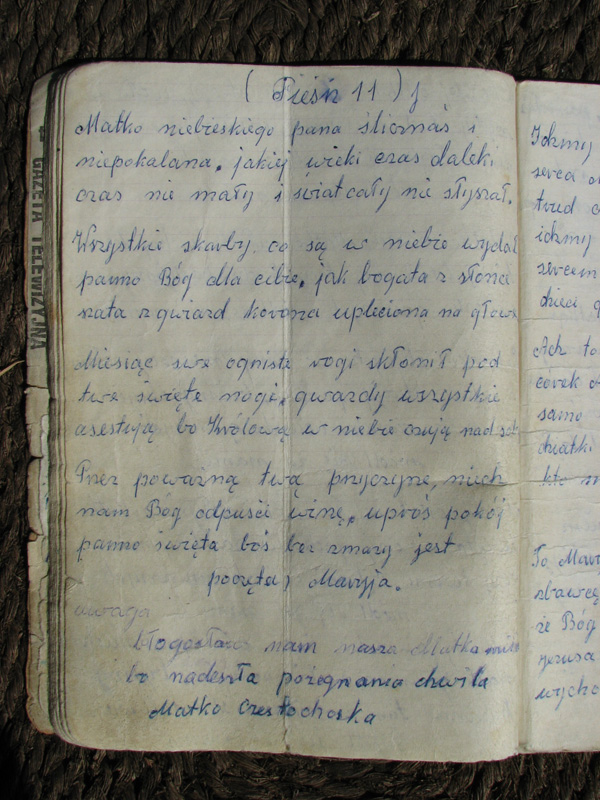 ( Pieśń 11 ) j
Matko niebieskiego pana ślicznaś i
niepokalana. jakiej wieki czas daleki
czas nie mały i świat cały nie słyszał.
Wszystkie skarby co są w niebie wydał
panno Bóg dla cibie. jak bogata z słońca
szata z gwiazd korona upleciona na głowie
Miesiąc swe ogniste rogi skłonił pod
twe święte nogi. gwiazdy wszystkie
asestują bo Królową w niebie czują nad sob
Przez poważną twą przyczynę, niech
nam Bóg odpuści winę. uproś pokój
panno święta boś bez zmazy jest
poczęta, Maryja.
uwaga
błogosław nam nasza Matko miła
bo nadeszła pożegnania chwila
Matko Czestochoska
GAZETA TELEWIZYJNA
Idźmy
serca
trud
idźmy
sercem
dzieci
Ach
samo
dziatki
kto
To
zbawcą
że Bóg
jezusa